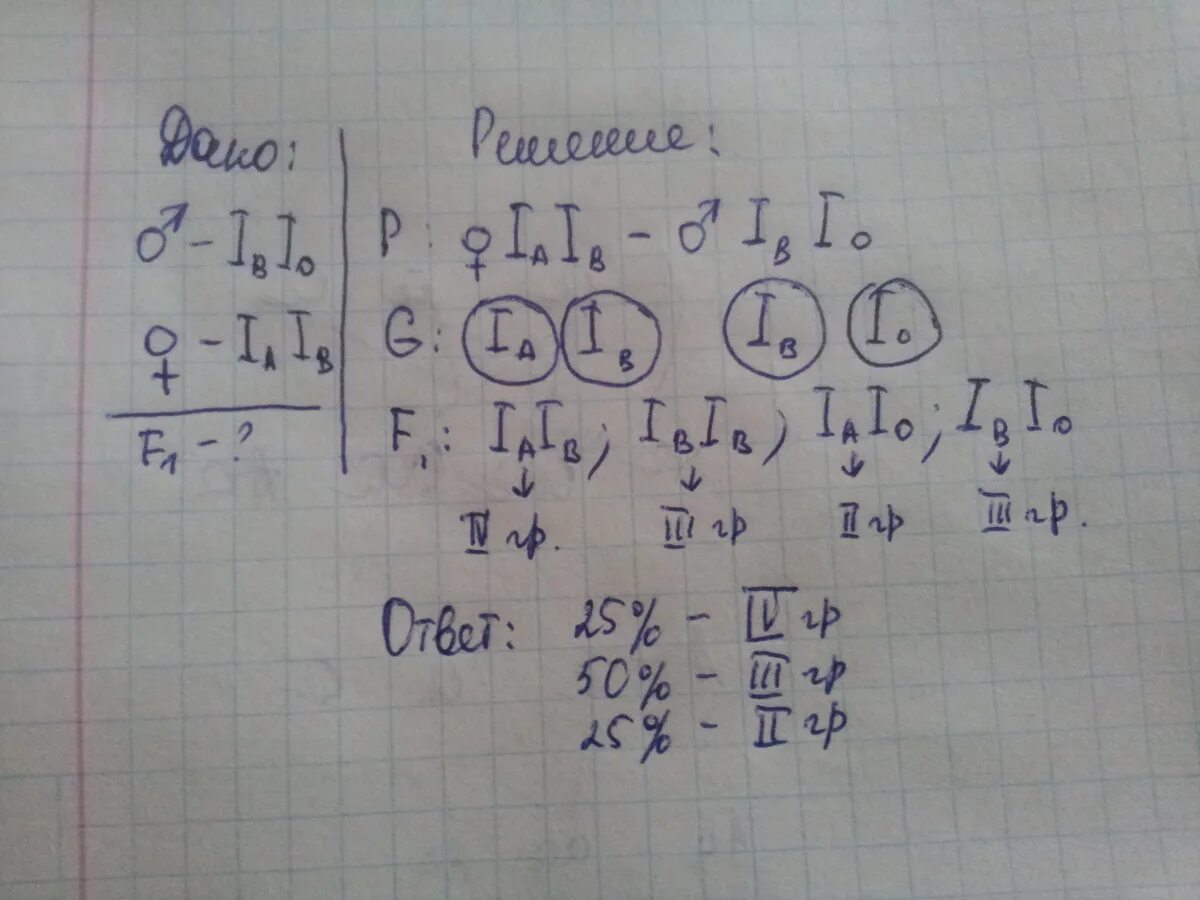 Дано:
♂ - IB IO
♀ - IA IB
F1 - ?
Решение:
P: ♀ IA IB - ♂ IB IO
G: IA IB IB IO
F1: IA IB; IB IB, IA IO; IB IO
↓ ↓ ↓ ↓
IV гр. III гр II гр III гр.
Ответ: 25% - IV гр
50% - III гр
25% - II гр